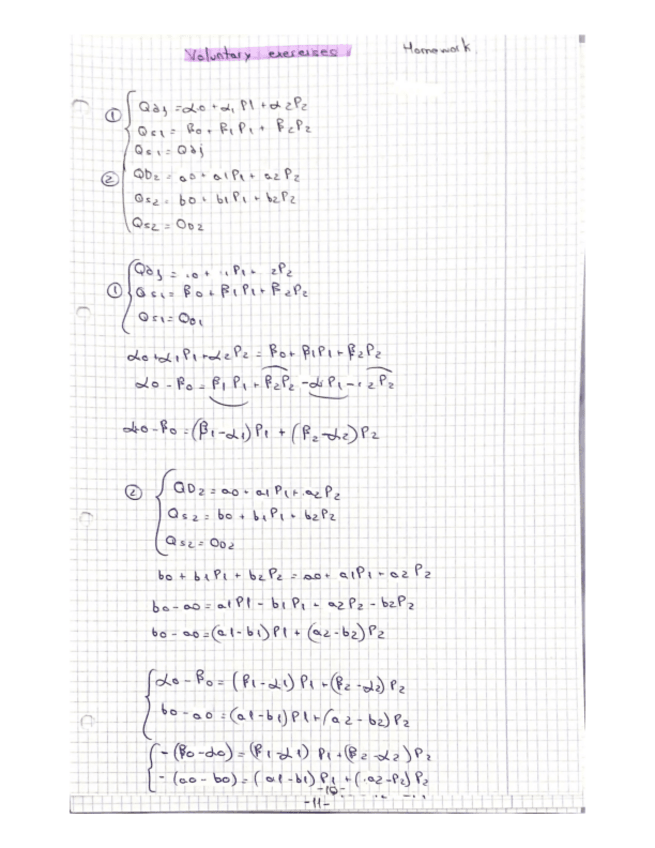 Voluntary exercises Homework
① Qdj = α0 + α1 P1 + α2 P2
Qs1 = β0 + β1 P1 + β2 P2
Qs1 = Qdj
② QD2 = a0 + a1 P1 + a2 P2
Qs2 = b0 + b1 P1 + b2 P2
Qs2 = QD2
① Qdj = .0 + .1 P1 + 2P2
Qs1 = β0 + β1 P1 + β2 P2
Qs1 = QD1
α0 + α1 P1 + α2 P2 = β0 + β1 P1 + β2 P2
α0 - β0 = β1 P1 + β2 P2 - α1 P1 - 2 P2
α0 - β0 = (β1 - α1) P1 + (β2 - α2) P2
② QD2 = a0 + a1 P1 + a2 P2
Qs2 = b0 + b1 P1 + b2 P2
Qs2 = QD2
b0 + b1 P1 + b2 P2 = a0 + a1 P1 + a2 P2
b0 - a0 = a1 P1 - b1 P1 + a2 P2 - b2 P2
b0 - a0 = (a1 - b1) P1 + (a2 - b2) P2
α0 - β0 = (β1 - α1) P1 + (β2 - α2) P2
b0 - a0 = (a1 - b1) P1 + (a2 - b2) P2
- (β0 - α0) = (β1 - α1) P1 + (β2 - α2) P2
- (a0 - b0) = (a1 - b1) P1 + (a2 - P2) P2
-10-
-11-